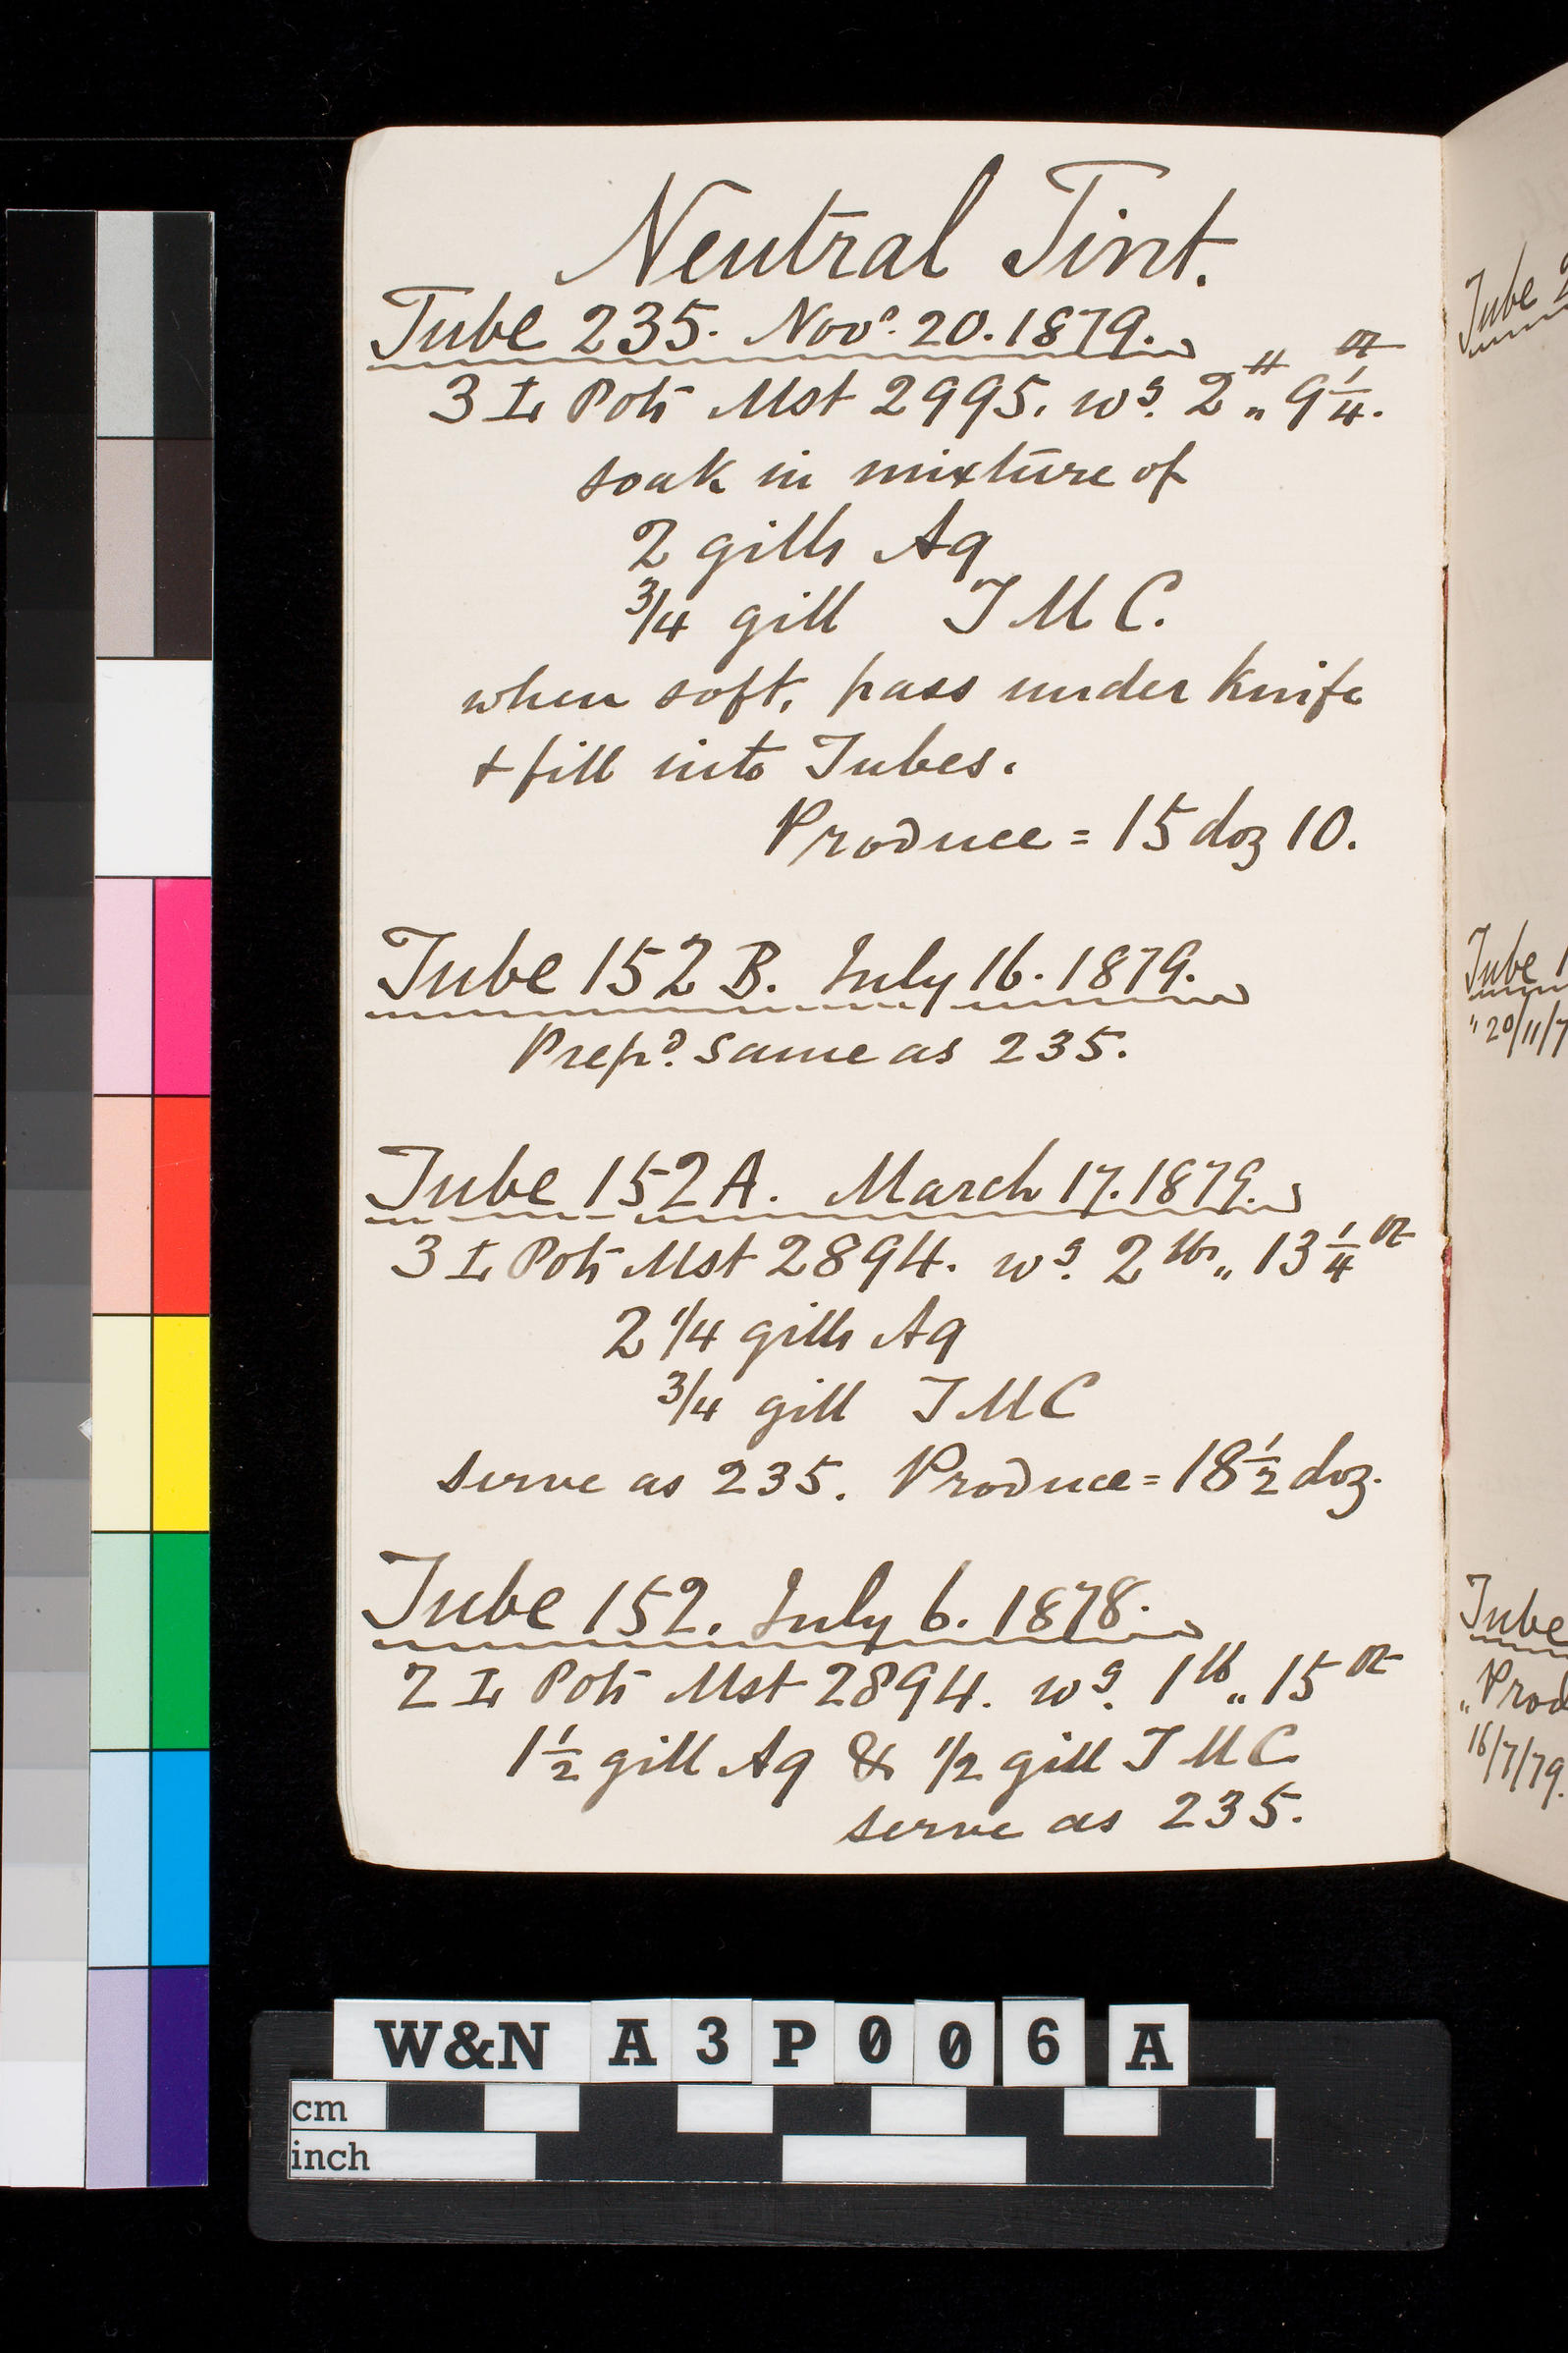 Neutral Tint.
Tube 235. Novr. 20. 1879.
3 L Pots Mst 2995. wg. 2 lb „ 9 1/4 oz.
soak in mixture of
2 gills Aq
3/4 gill T M C.
when soft, pass under knife
+ fill into Tubes.
Produce = 15 doz 10.
Tube 152 B. July 16. 1879.
Prepd. same as 235.
Tube 152 A. March 17. 1879.
3 L Pots Mst 2894. wg. 2 lbs „ 13 1/4 oz
2 1/4 gills Aq
3/4 gill T M C
serve as 235. Produce = 18 1/2 doz.
Tube 152. July 6. 1878.
2 L Pots Mst 2894. wg. 1 lb „ 15 oz
1 1/2 gill Aq & 1/2 gill T M C
serve as 235.
Tube
Tube 1
" 20/11/7
Tube
„ Prod
16/7/79.
W&N A3P006A
cm
inch